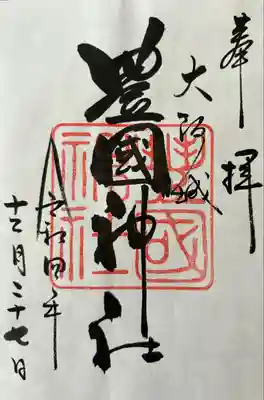 奉拝
大阪城
豊國神社
令和四年
十二月二十七日